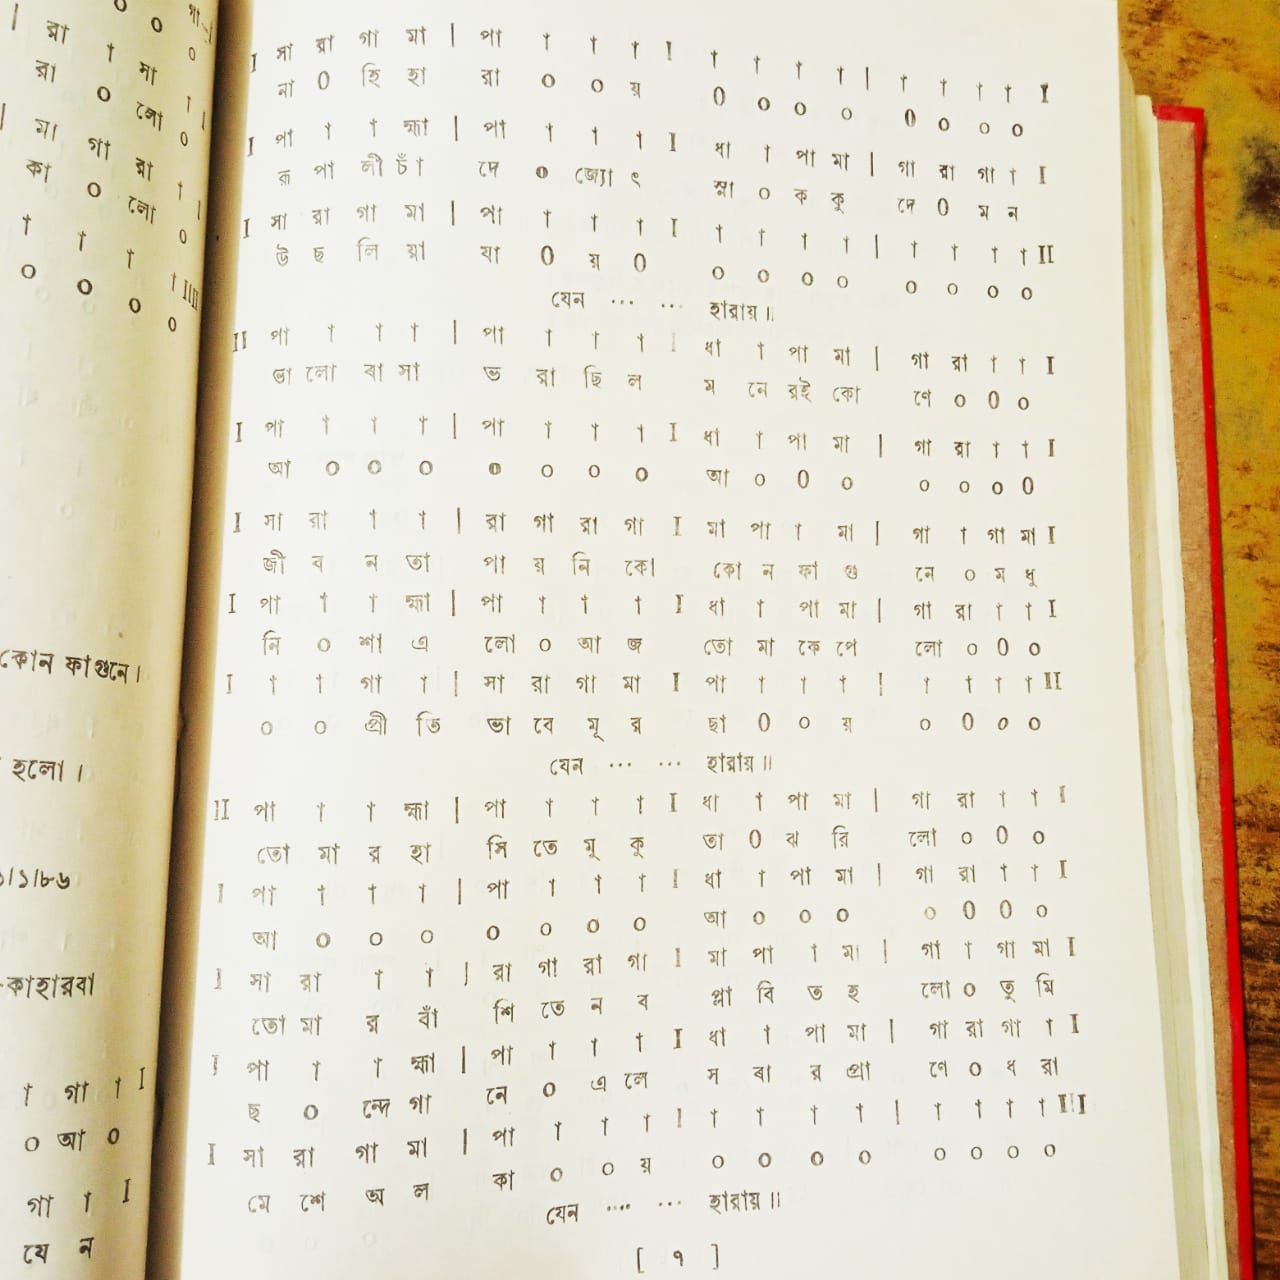 গা-।
। রা † সা †
রা ০ লো ০
। মা গা রা † ।
কা ০ লো ০
† † † † IIII
০ ০ ০ ০
কোন ফাগুনে।
হলো।
১/১/৮৬
-কাহারবা
† গা † I
০ আ ০
গা † I
যে ন
I সা রা গা মা | পা † † † I † † † † | † † † † I
না ০ হি হা রা ০ ০ য় ০ ০ ০ ০ ০ ০ ০ ০
I পা † † হ্মা | পা † † † I ধা † পা মা | গা রা গা † I
রূ পা লী চাঁ দে ০ জ্যো ৎ স্না ০ ক কু দে ০ ম ন
I সা রা গা মা | পা † † † I † † † † | † † † † II
উ ছ লি য়া যা ০ য় ০ ০ ০ ০ ০ ০ ০ ০ ০
যেন ... ... হারায়॥
II পা † † † | পা † † † I ধা † পা মা | গা রা † † I
ভা লো বা সা ভ রা ছি ল ম নে রই কো ণে ০ ০ ০
I পা † † † | পা † † † I ধা † পা মা | গা রা † † I
আ ০ ০ ০ ০ ০ ০ ০ আ ০ ০ ০ ০ ০ ০ ০
I সা রা † † | রা গা রা গা I মা পা † মা | গা † গা মা I
জী ব ন তা পা য় নি কো কো ন ফা গু নে ০ ম ধু
I পা † † হ্মা | পা † † † I ধা † পা মা | গা রা † † I
নি ০ শা এ লো ০ আ জ তো মা কে পে লো ০ ০ ০
I † † গা † | সা রা গা মা I পা † † † | † † † † II
০ ০ প্রী তি ভা বে মূ র ছা ০ ০ য় ০ ০ ০ ০
যেন ... ... হারায়॥
II পা † † হ্মা | পা † † † I ধা † পা মা | গা রা † † I
তো মা র হা সি তে মু কু তা ০ ঝ রি লো ০ ০ ০
I পা † † † | পা † † † I ধা † পা মা | গা রা † † I
আ ০ ০ ০ ০ ০ ০ ০ আ ০ ০ ০ ০ ০ ০ ০
I সা রা † † | রা গা রা গা I মা পা † মা | গা † গা মা I
তো মা র বাঁ শি তে ন ব প্লা বি ত হ লো ০ তু মি
I পা † † হ্মা | পা † † † I ধা † পা মা | গা রা গা † I
ছ ০ ন্দে গা নে ০ এ লে স বা র প্রা ণে ০ ধ রা
I সা রা গা মা | পা † † † I † † † † | † † † † III
মে শে অ ল কা ০ ০ য় ০ ০ ০ ০ ০ ০ ০ ০
যেন .... ... হারায়॥
[ ৭ ]